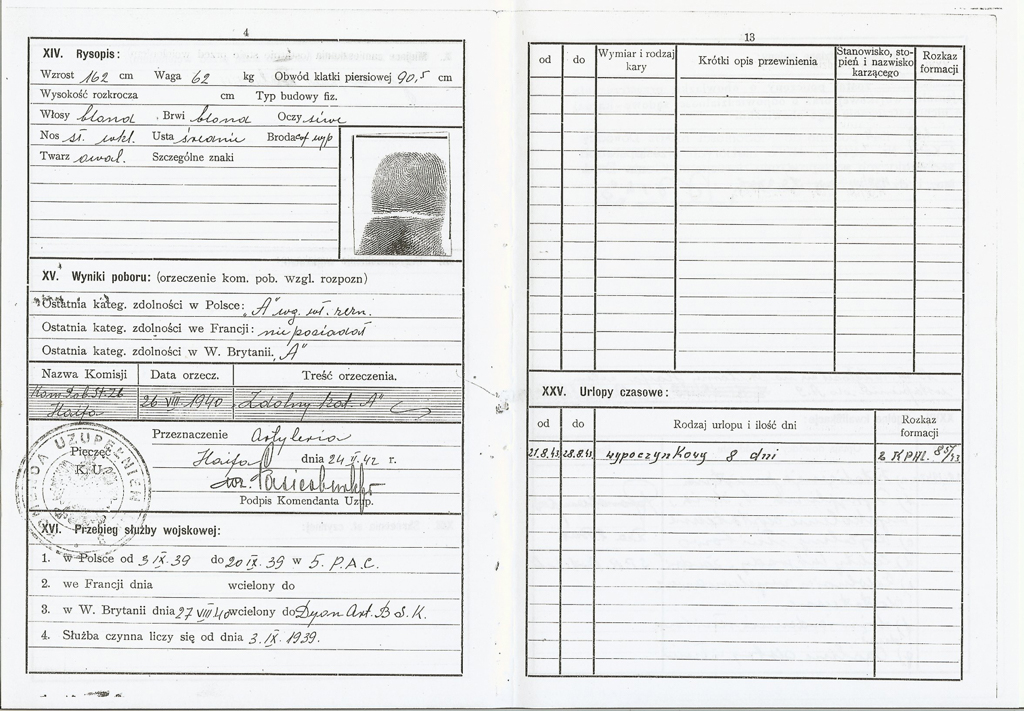 4
XIV. Rysopis:
Wzrost 162 cm Waga 62 kg Obwód klatki piersiowej 90,5 cm
Wysokość rozkrocza cm Typ budowy fiz.
Włosy blond , Brwi blond Oczy siwe
Nos śr. wkl. Usta średnie Broda
Twarz owal. Szczególne znaki
XV. Wyniki poboru: (orzeczenie kom. pob. wzgl. rozpozn)
Ostatnia kateg. zdolności w Polsce: „A" wg. wł. zezn.
Ostatnia kateg. zdolności we Francji: nie posiadał
Ostatnia kateg. zdolności w W. Brytanii „A"
Nazwa Komisji Data orzecz. Treść orzeczenia.
Kom. Pob. St. 26 Haifa 26 VIII 1940 „Zdolny kat. A"
Przeznaczenie Artyleria
Pieczęć K. U. Haifa dnia 24 II. 42 r.
Podpis Komendanta Uzup.
KOMENDA UZUPEŁNIEŃ
XVI. Przebieg służby wojskowej:
1. w Polsce od 3 IX. 39 do 20 IX. 39 w 5. P.A.C.
2. we Francji dnia wcielony do
3. w W. Brytanii dnia 27 VIII 40 wcielony do Dyon Art. B S. K.
4. Służba czynna liczy się od dnia 3. IX. 1939.
13
od do Wymiar i rodzaj kary Krótki opis przewinienia Stanowisko, stopień i nazwisko karzącego Rozkaz formacji
XXV. Urlopy czasowe:
od do Rodzaj urlopu i ilość dni Rozkaz formacji
21.8.43 28.8.43 wypoczynkowy 8 dni 2 KPAL. 85/43